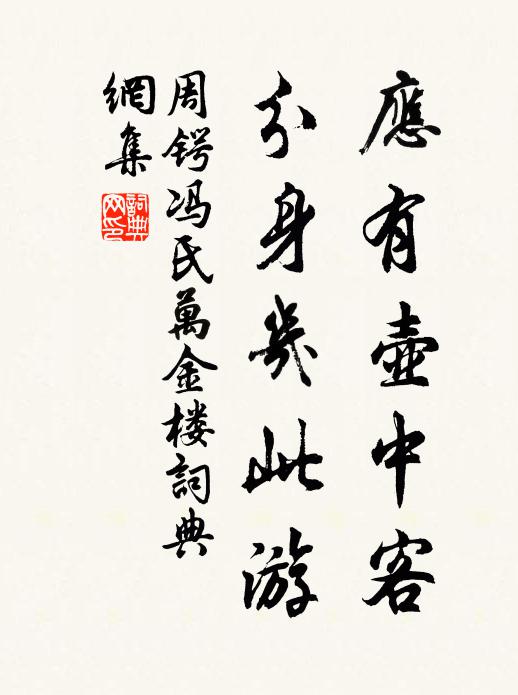 應有壺中客
分身幾此游
周锷冯氏萬金楼詞典
網集
詞典
网印